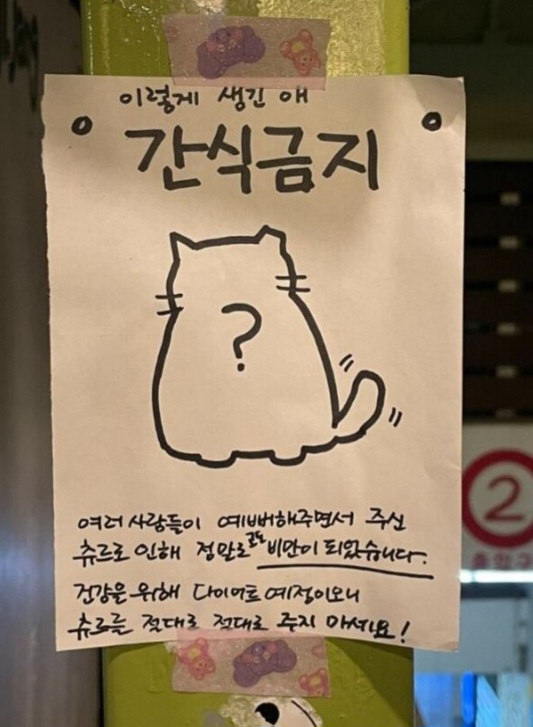 이렇게 생긴 애
간식금지
?
여러 사람들이 예뻐해주면서 주신
츄르로 인해 정말로 고도 비만이 되었습니다.
건강을 위해 다이어트 예정이오니
츄르를 절대로 절대로 주지 마세요!
2